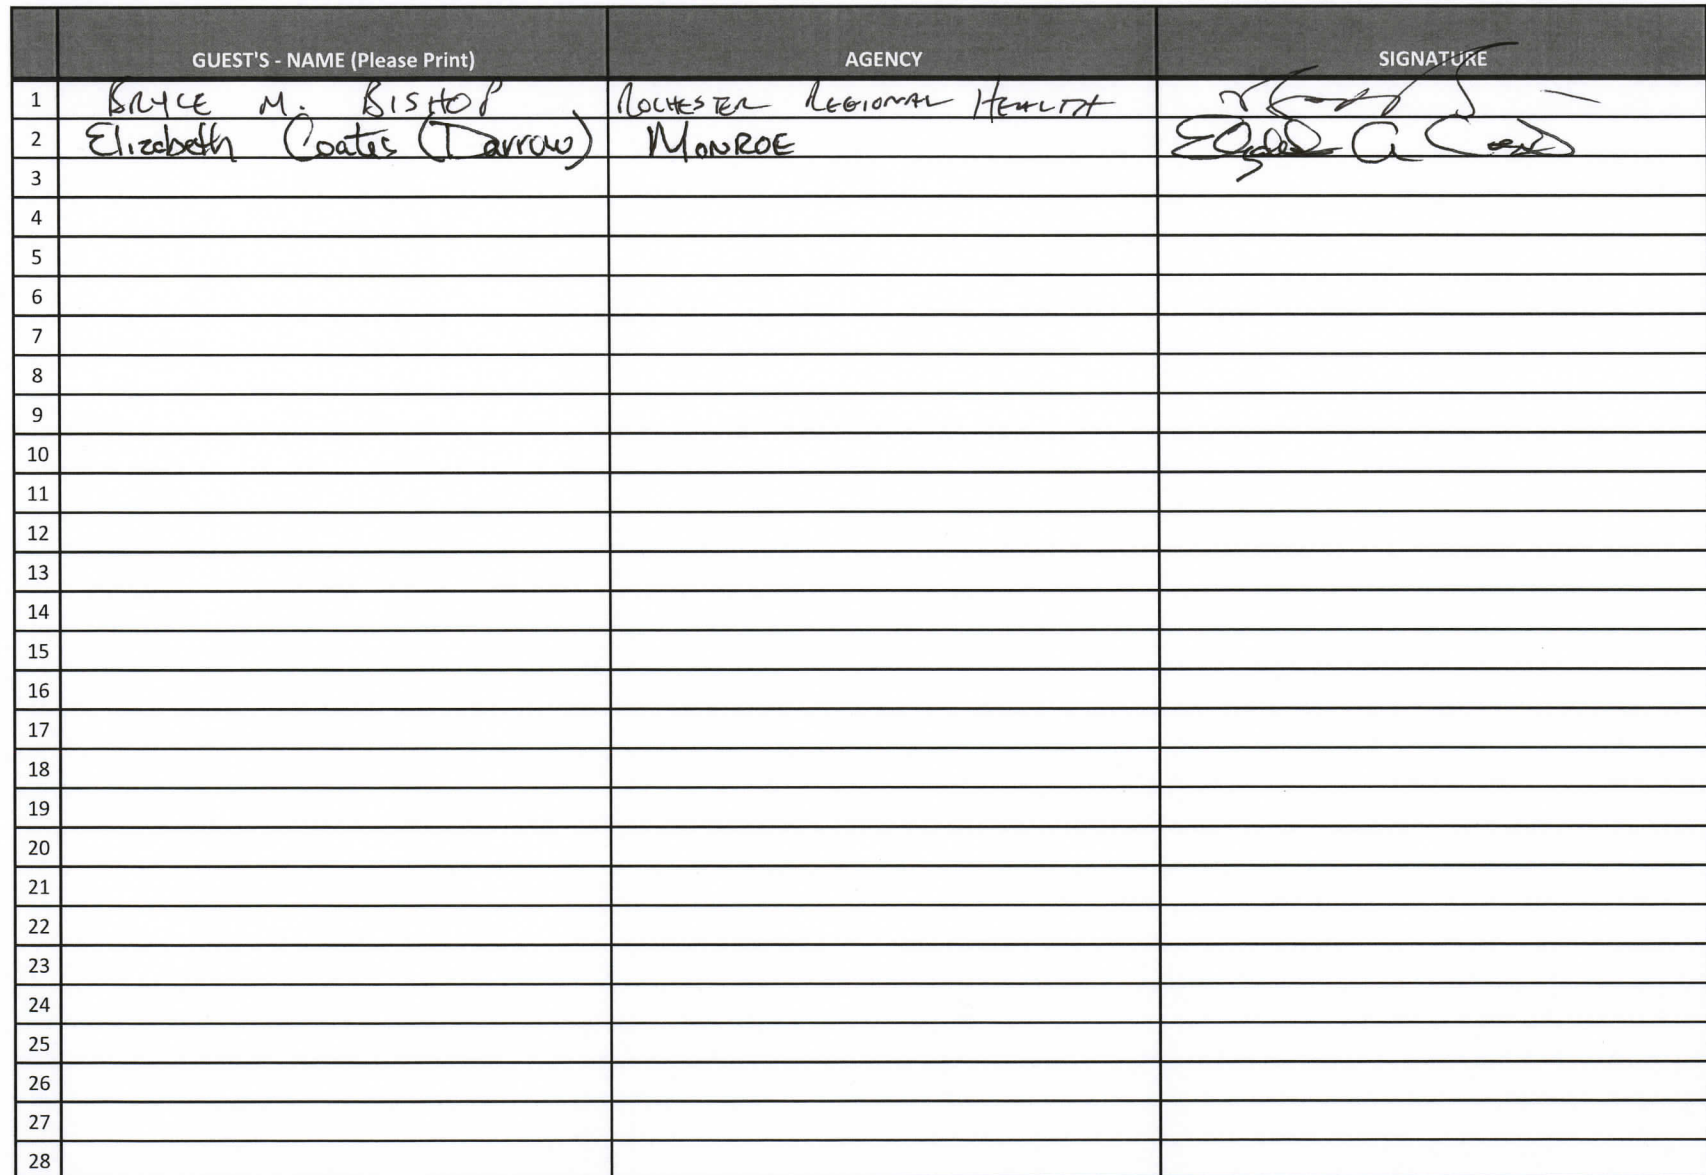 GUEST'S - NAME (Please Print) AGENCY SIGNATURE
1 BRYCE M. BISHOP ROCHESTER REGIONAL HEALTH
2 Elizabeth Coates (Darrow) MONROE Elizabeth A Coates
3
4
5
6
7
8
9
10
11
12
13
14
15
16
17
18
19
20
21
22
23
24
25
26
27
28